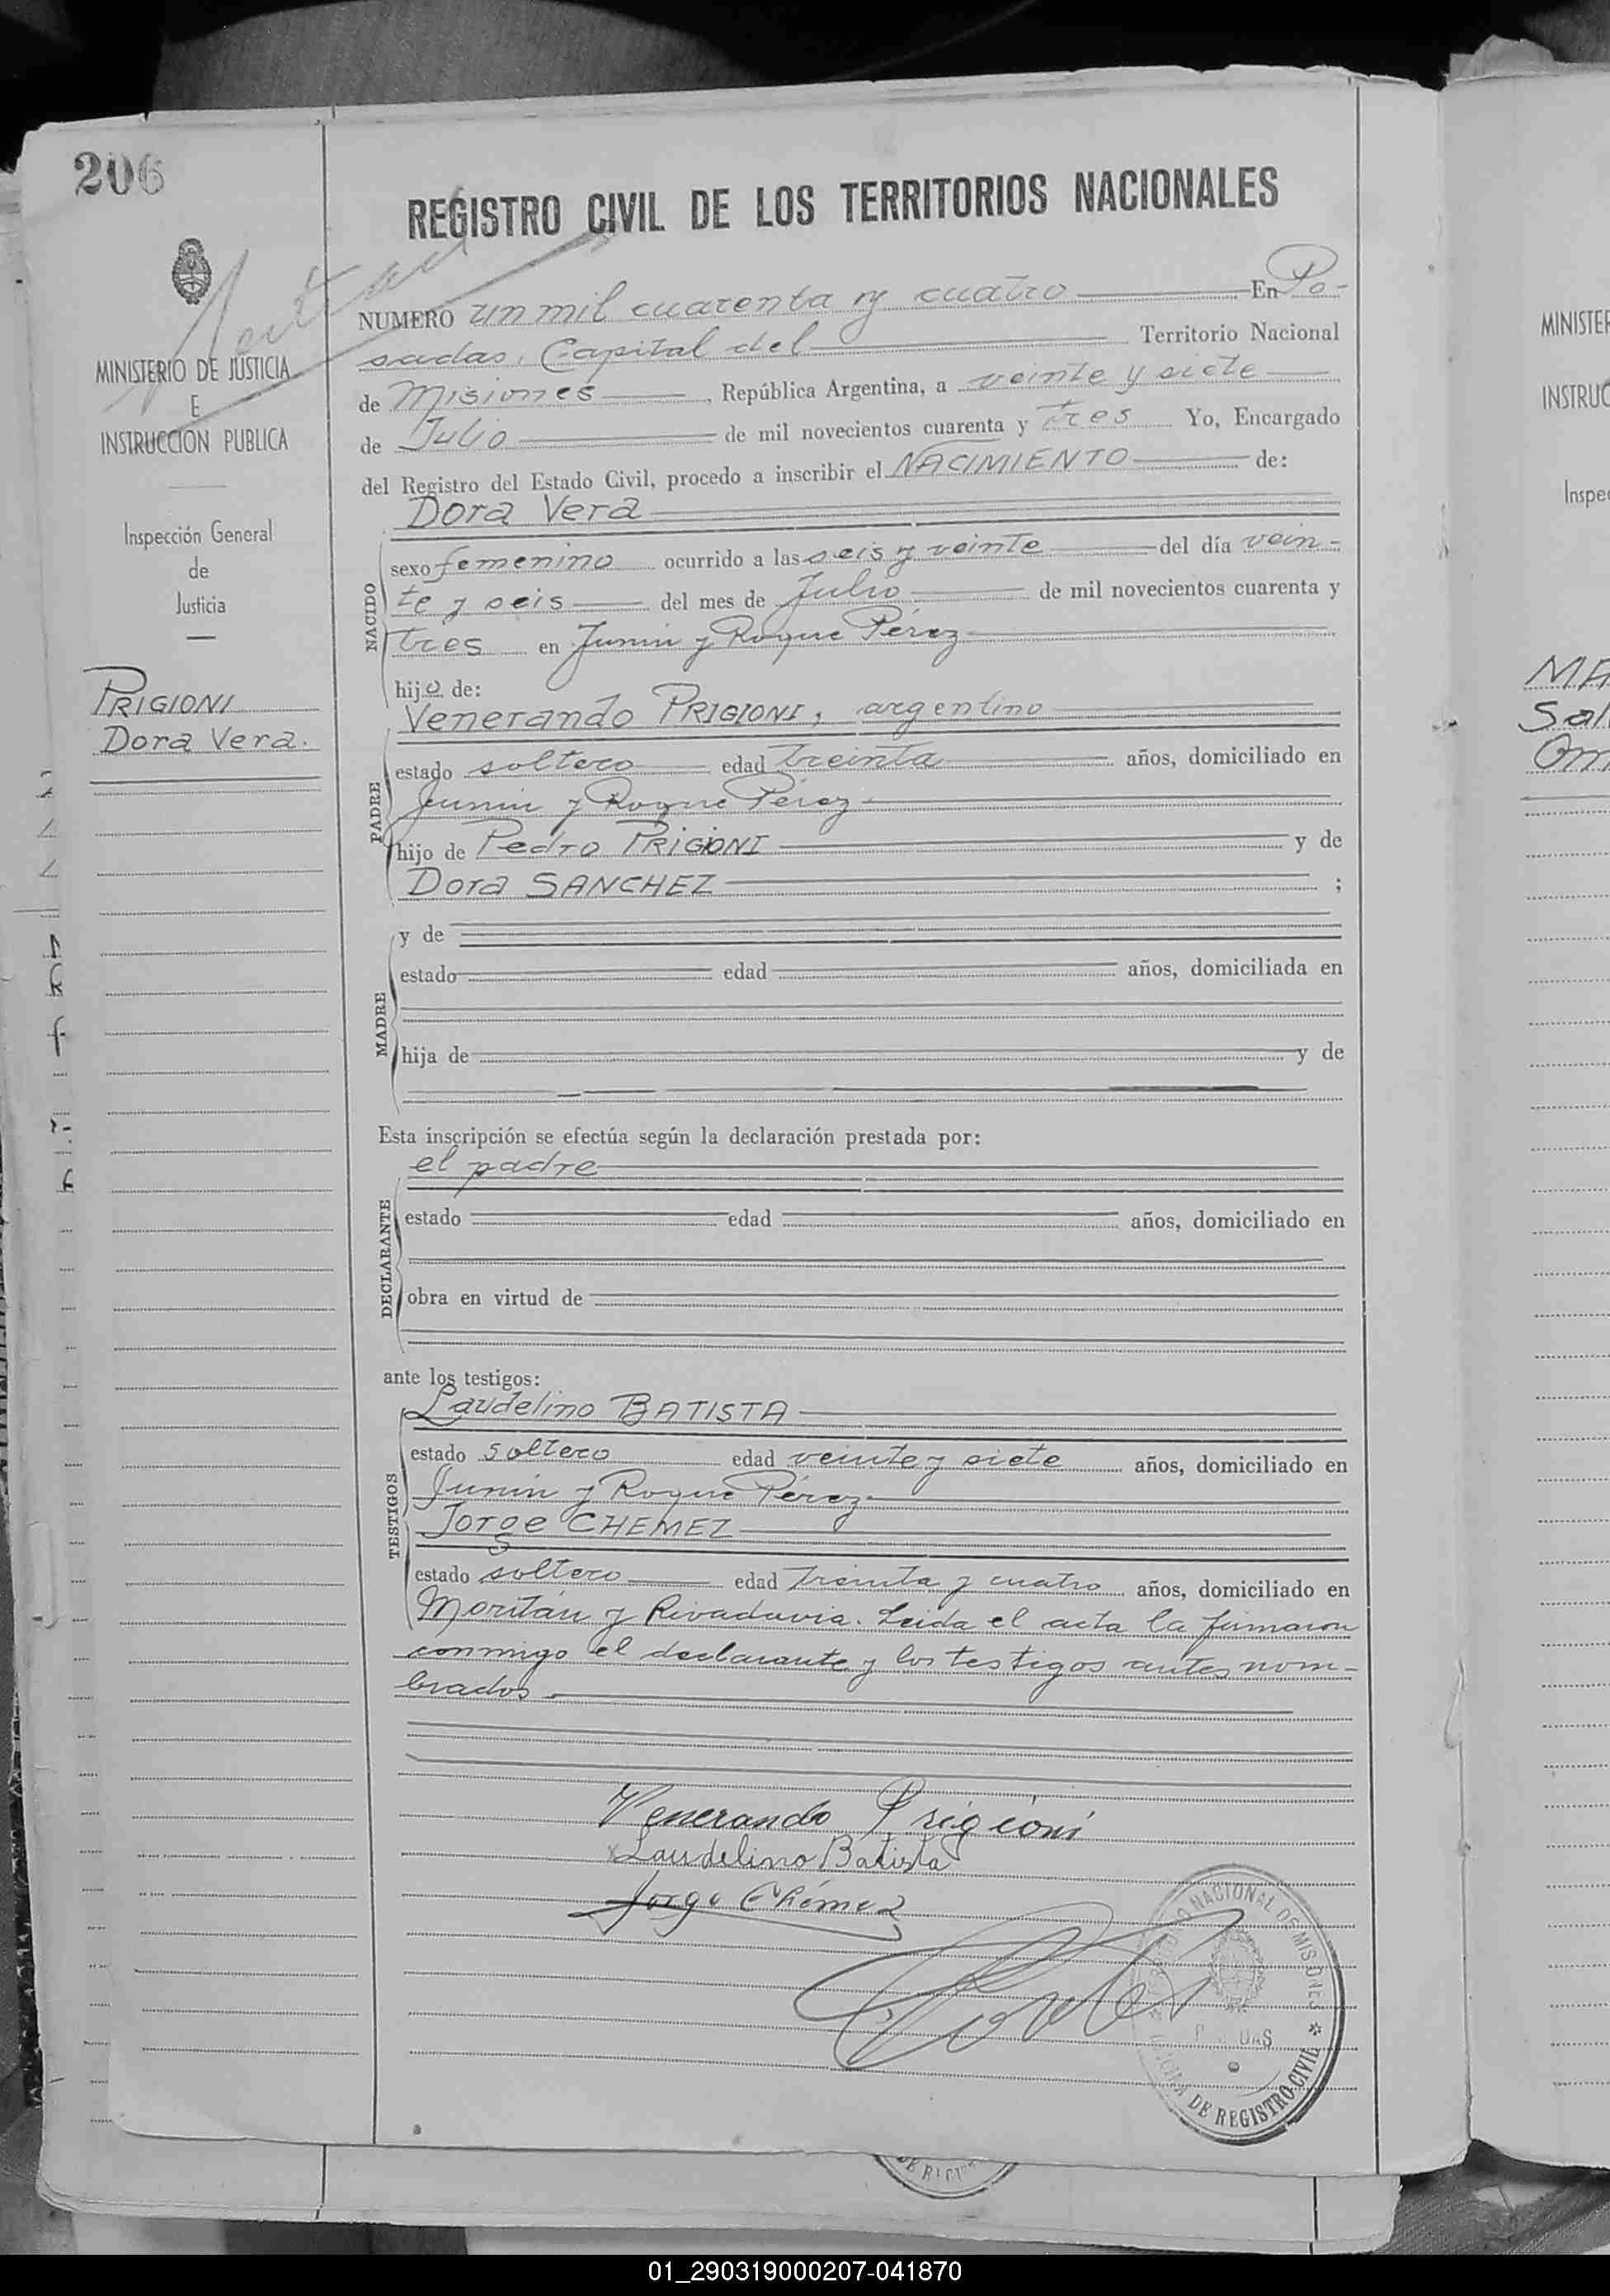 206
REGISTRO CIVIL DE LOS TERRITORIOS NACIONALES
MINISTERIO DE JUSTICIA
E
INSTRUCCIÓN PUBLICA
Inspección General
de
Justicia
PRIGIONI
Dora Vera.
NUMERO un mil cuarenta y cuatro En Po-
sadas, Capital del Territorio Nacional
de Misiones, República Argentina, a veinte y siete
de Julio de mil novecientos cuarenta y tres Yo, Encargado
del Registro del Estado Civil, procedo a inscribir el NACIMIENTO de:
Dora Vera
NACIDO
sexo femenino ocurrido a las seis y veinte del día vein-
te y seis del mes de Julio de mil novecientos cuarenta y
tres en Junin y Roque Pérez
hijo de:
Venerando PRIGIONI, argentino
PADRE
estado soltero edad treinta años, domiciliado en
Junin y Roque Pérez
hijo de Pedro PRIGIONI y de
Dora SANCHEZ ;
MADRE
y de
estado edad años, domiciliada en
hija de y de
Esta inscripción se efectúa según la declaración prestada por:
el padre
DECLARANTE
estado edad años, domiciliado en
obra en virtud de
ante los testigos:
Laudelino BATISTA
TESTIGOS
estado soltero edad veinte y siete años, domiciliado en
Junin y Roque Pérez
Jorge CHEMEZ
estado soltero edad treinta y cuatro años, domiciliado en
Moritán y Rivadavia. Leida el acta la firmaron
conmigo el declarante y los testigos antes nom-
brados
Venerando Prigioni
Laudelino Batista
Jorge Chémez
NACIONAL DE MISIONES
DE REGISTRO CIVIL
MINISTER
INSTRUC
Inspe
01_290319000207-041870